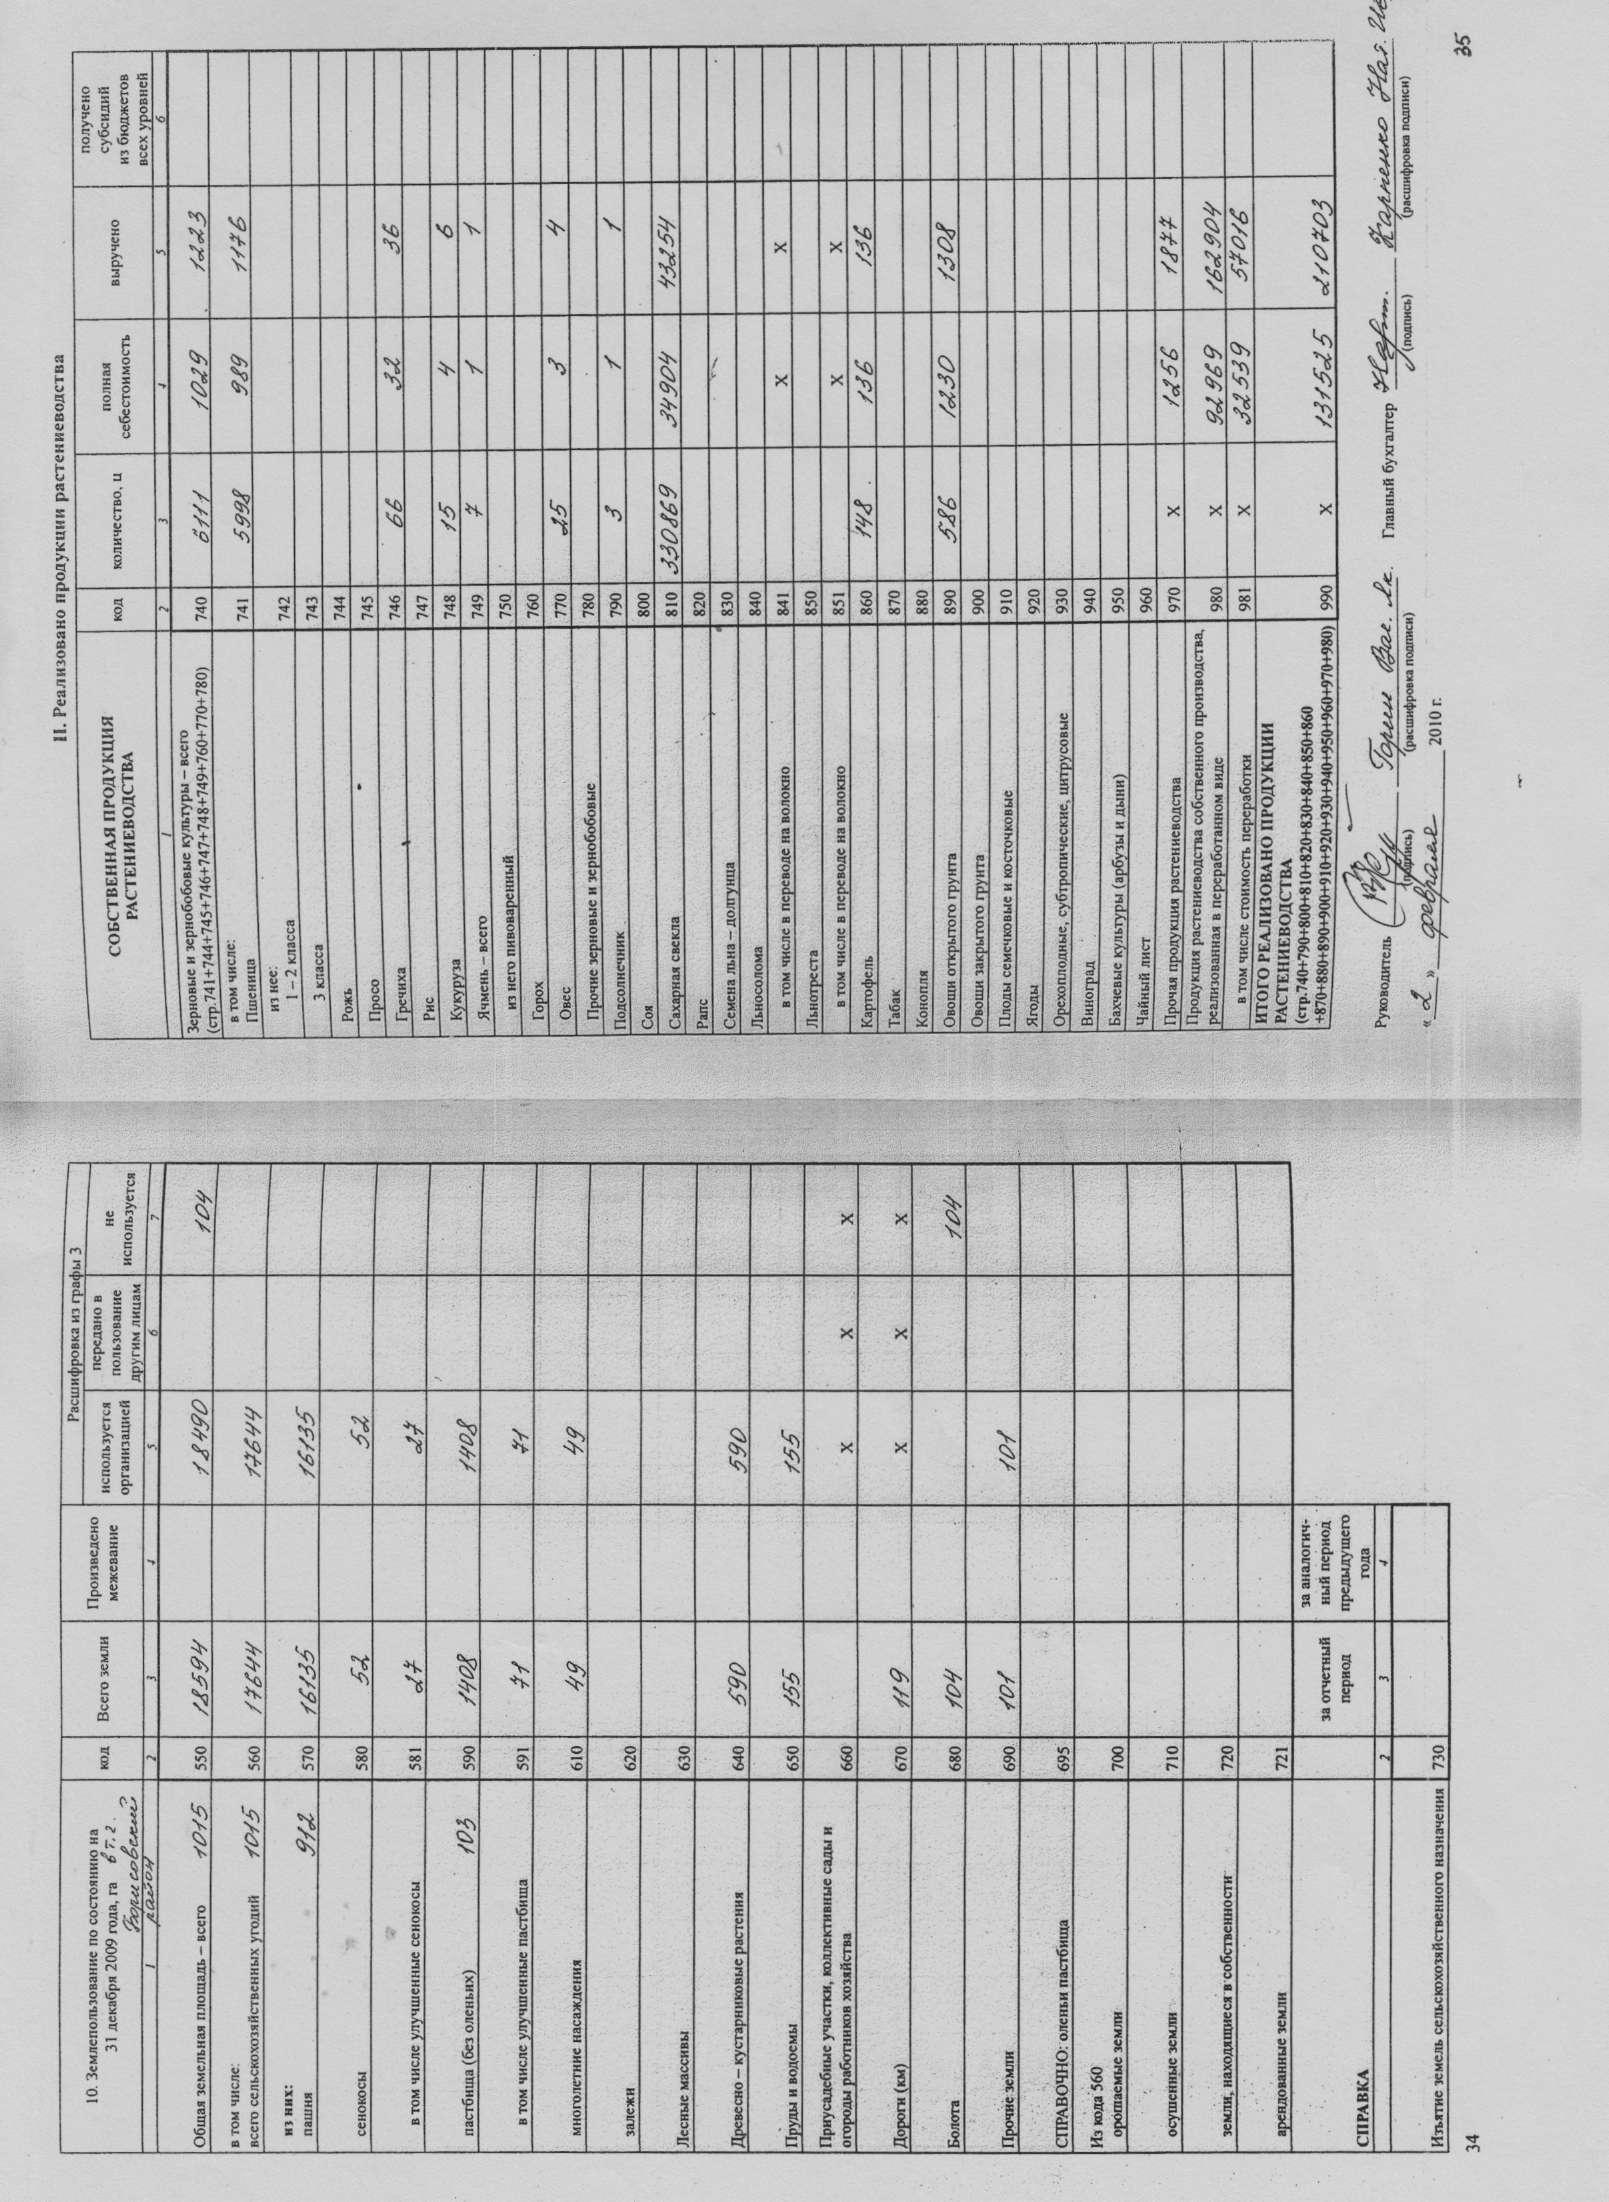 10. Землепользование по состоянию на
31 декабря 2009 года, га в т. г.
Борисовский
район
код
Всего земли
Произведено
межевание
Расшифровка из графы 3
используется
организацией
передано в
пользование
другим лицам
не
используется
1 2 3 4 5 6 7
Общая земельная площадь – всего 1015 550 18594 18490 104
в том числе:
всего сельскохозяйственных угодий 1015 560 17644 17644
из них:
пашня 912 570 16135 16135
сенокосы 580 52 52
в том числе улучшенные сенокосы 581 27 27
пастбища (без оленьих) 103 590 1408 1408
в том числе улучшенные пастбища 591 71 71
многолетние насаждения 610 49 49
залежи 620
Лесные массивы 630
Древесно – кустарниковые растения 640 590 590
Пруды и водоемы 650 155 155
Приусадебные участки, коллективные сады и
огороды работников хозяйства 660 X X X
Дороги (км) 670 119 X X X
Болота 680 104 104
Прочие земли 690 101 101
СПРАВОЧНО: оленьи пастбища 695
Из кода 560
орошаемые земли 700
осушенные земли 710
земли, находящиеся в собственности 720
арендованные земли 721
СПРАВКА
за отчетный
период
за аналогич-
ный период
предыдущего
года
2 3 4
Изъятие земель сельскохозяйственного назначения 730
34
II. Реализовано продукции растениеводства
СОБСТВЕННАЯ ПРОДУКЦИЯ
РАСТЕНИЕВОДСТВА
код
количество, ц
полная
себестоимость
выручено
получено
субсидий
из бюджетов
всех уровней
1 2 3 4 5 6
Зерновые и зернобобовые культуры – всего
(стр.741+744+745+746+747+748+749+760+770+780) 740 6111 1029 1223
в том числе:
Пшеница 741 5998 989 1176
из нее:
1 – 2 класса 742
3 класса 743
Рожь 744
Просо 745
Гречиха 746 66 32 36
Рис 747
Кукуруза 748 15 4 6
Ячмень – всего 749 7 1 1
из него пивоваренный 750
Горох 760
Овес 770 25 3 4
Прочие зерновые и зернобобовые 780
Подсолнечник 790 3 1 1
Соя 800
Сахарная свекла 810 330869 34904 43254
Рапс 820
Семена льна – долгунца 830
Льносолома 840
в том числе в переводе на волокно 841 X X
Льнотреста 850
в том числе в переводе на волокно 851 X X
Картофель 860 148 136 136
Табак 870
Конопля 880
Овощи открытого грунта 890 586 1230 1308
Овощи закрытого грунта 900
Плоды семечковые и косточковые 910
Ягоды 920
Орехоплодные, субтропические, цитрусовые 930
Виноград 940
Бахчевые культуры (арбузы и дыни) 950
Чайный лист 960
Прочая продукция растениеводства 970 X 1256 1877
Продукция растениеводства собственного производства,
реализованная в переработанном виде 980 X 92969 162904
в том числе стоимость переработки 981 X 32539 57016
ИТОГО РЕАЛИЗОВАНО ПРОДУКЦИИ
РАСТЕНИЕВОДСТВА
(стр.740+790+800+810+820+830+840+850+860
+870+880+890+900+910+920+930+940+950+960+970+980) 990 X 131525 210703
Руководитель Горин Вас. Як. Главный бухгалтер Карпенко Над.
(подпись) (расшифровка подписи) (подпись) (расшифровка подписи)
« 2 » февраля 2010 г.
35